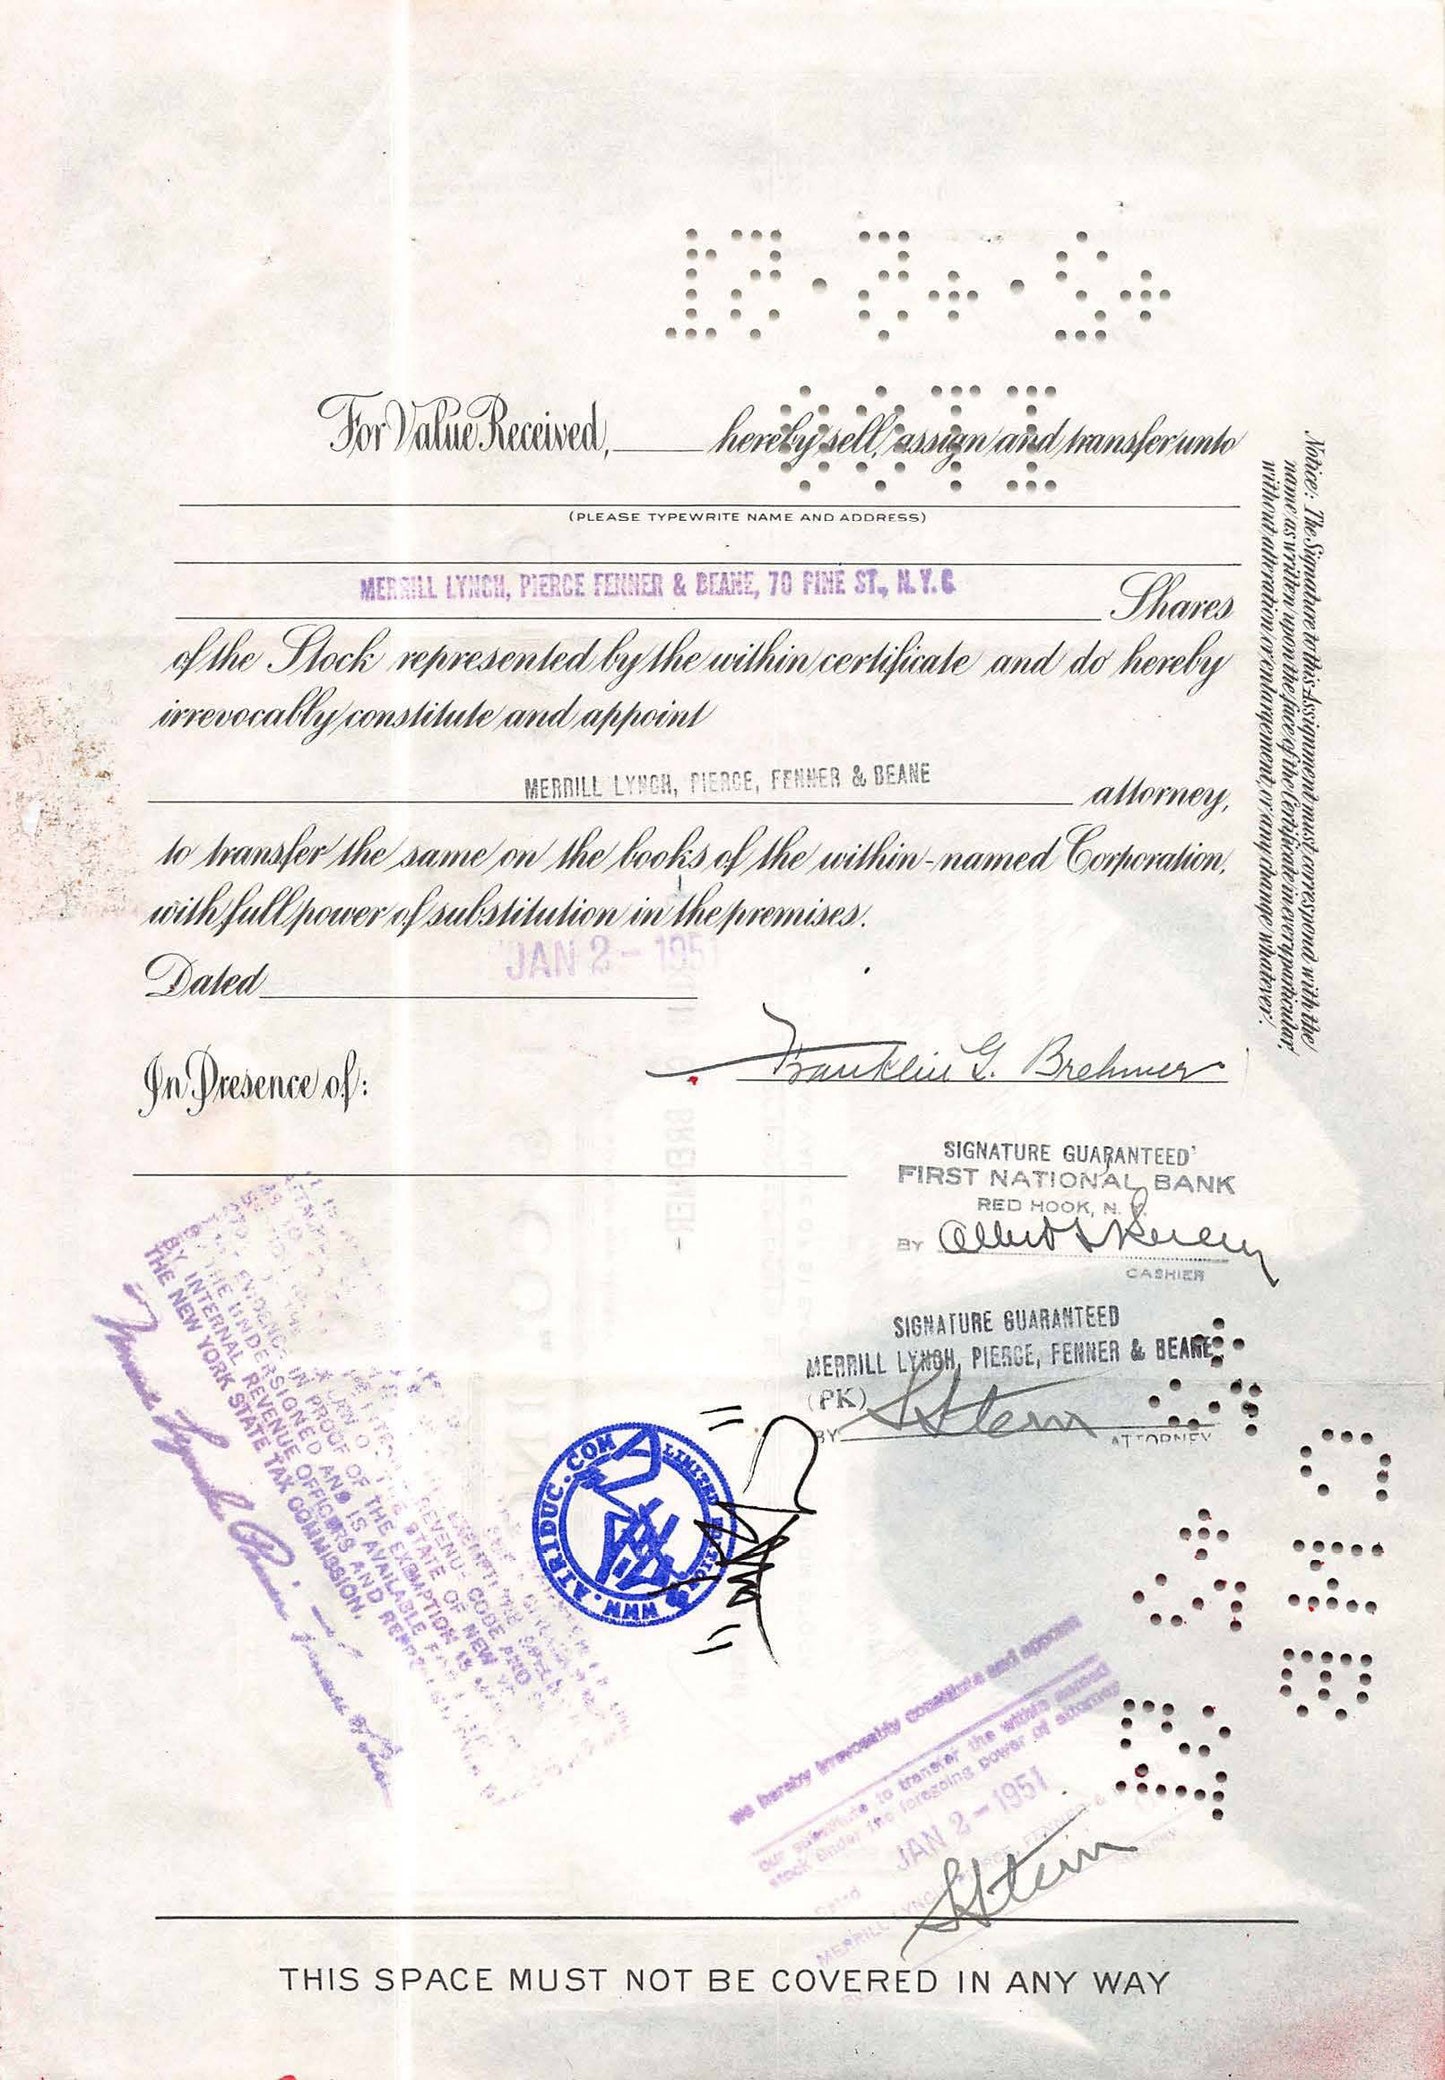 For Value Received, hereby sell, assign and transfer unto
(PLEASE TYPEWRITE NAME AND ADDRESS)
MERRILL LYNCH, PIERCE FENNER & BEANE, 70 PINE ST., N.Y.C
Shares
of the Stock represented by the within certificate and do hereby
irrevocably constitute and appoint
MERRILL LYNCH, PIERCE, FENNER & BEANE
attorney,
to transfer the same on the books of the within-named Corporation,
with full power of substitution in the premises.
Dated JAN 2 - 1951
Franklin G. Brehmer
In Presence of:
Notice: The Signature to this Assignment must correspond with the
name as written upon the face of the Certificate in every particular,
without alteration or enlargement, or any change whatever.
SIGNATURE GUARANTEED
FIRST NATIONAL BANK
RED HOOK, N.
BY
CASHIER
SIGNATURE GUARANTEED
MERRILL LYNCH, PIERCE, FENNER & BEANE
(PK)
BY S Stein
ATTORNEY
EVIDENCE IN PROOF OF THE EXEMPTION IS
THE UNDERSIGNED AND IS AVAILABLE
BY INTERNAL REVENUE OFFICERS AND
THE NEW YORK STATE TAX COMMISSION.
WWW.ATRIDUC.COM LIMITED
we hereby irrevocably constitute and appoint
our substitute to transfer the within named
stock under the foregoing power of attorney
Dated JAN 2 - 1951
MERRILL LYNCH
S Stein
THIS SPACE MUST NOT BE COVERED IN ANY WAY